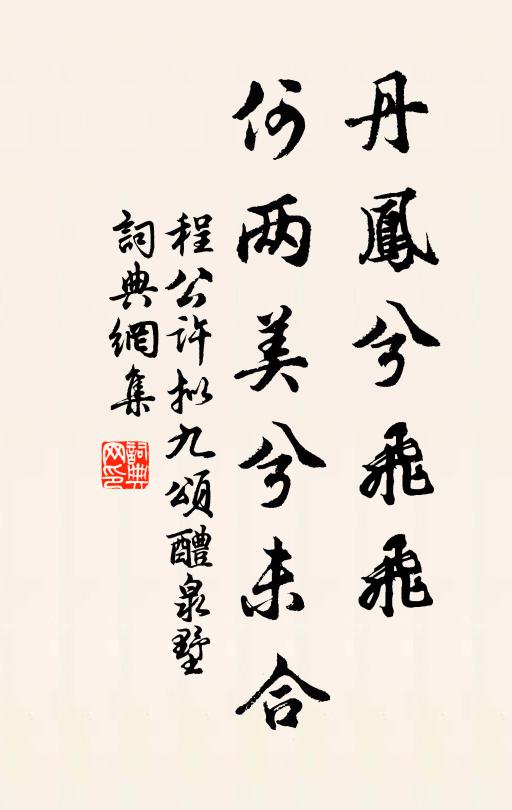 丹鳳兮飛飛
何两美兮未合
程公許拟九頌醴泉墅
詞典網集
詞典网印